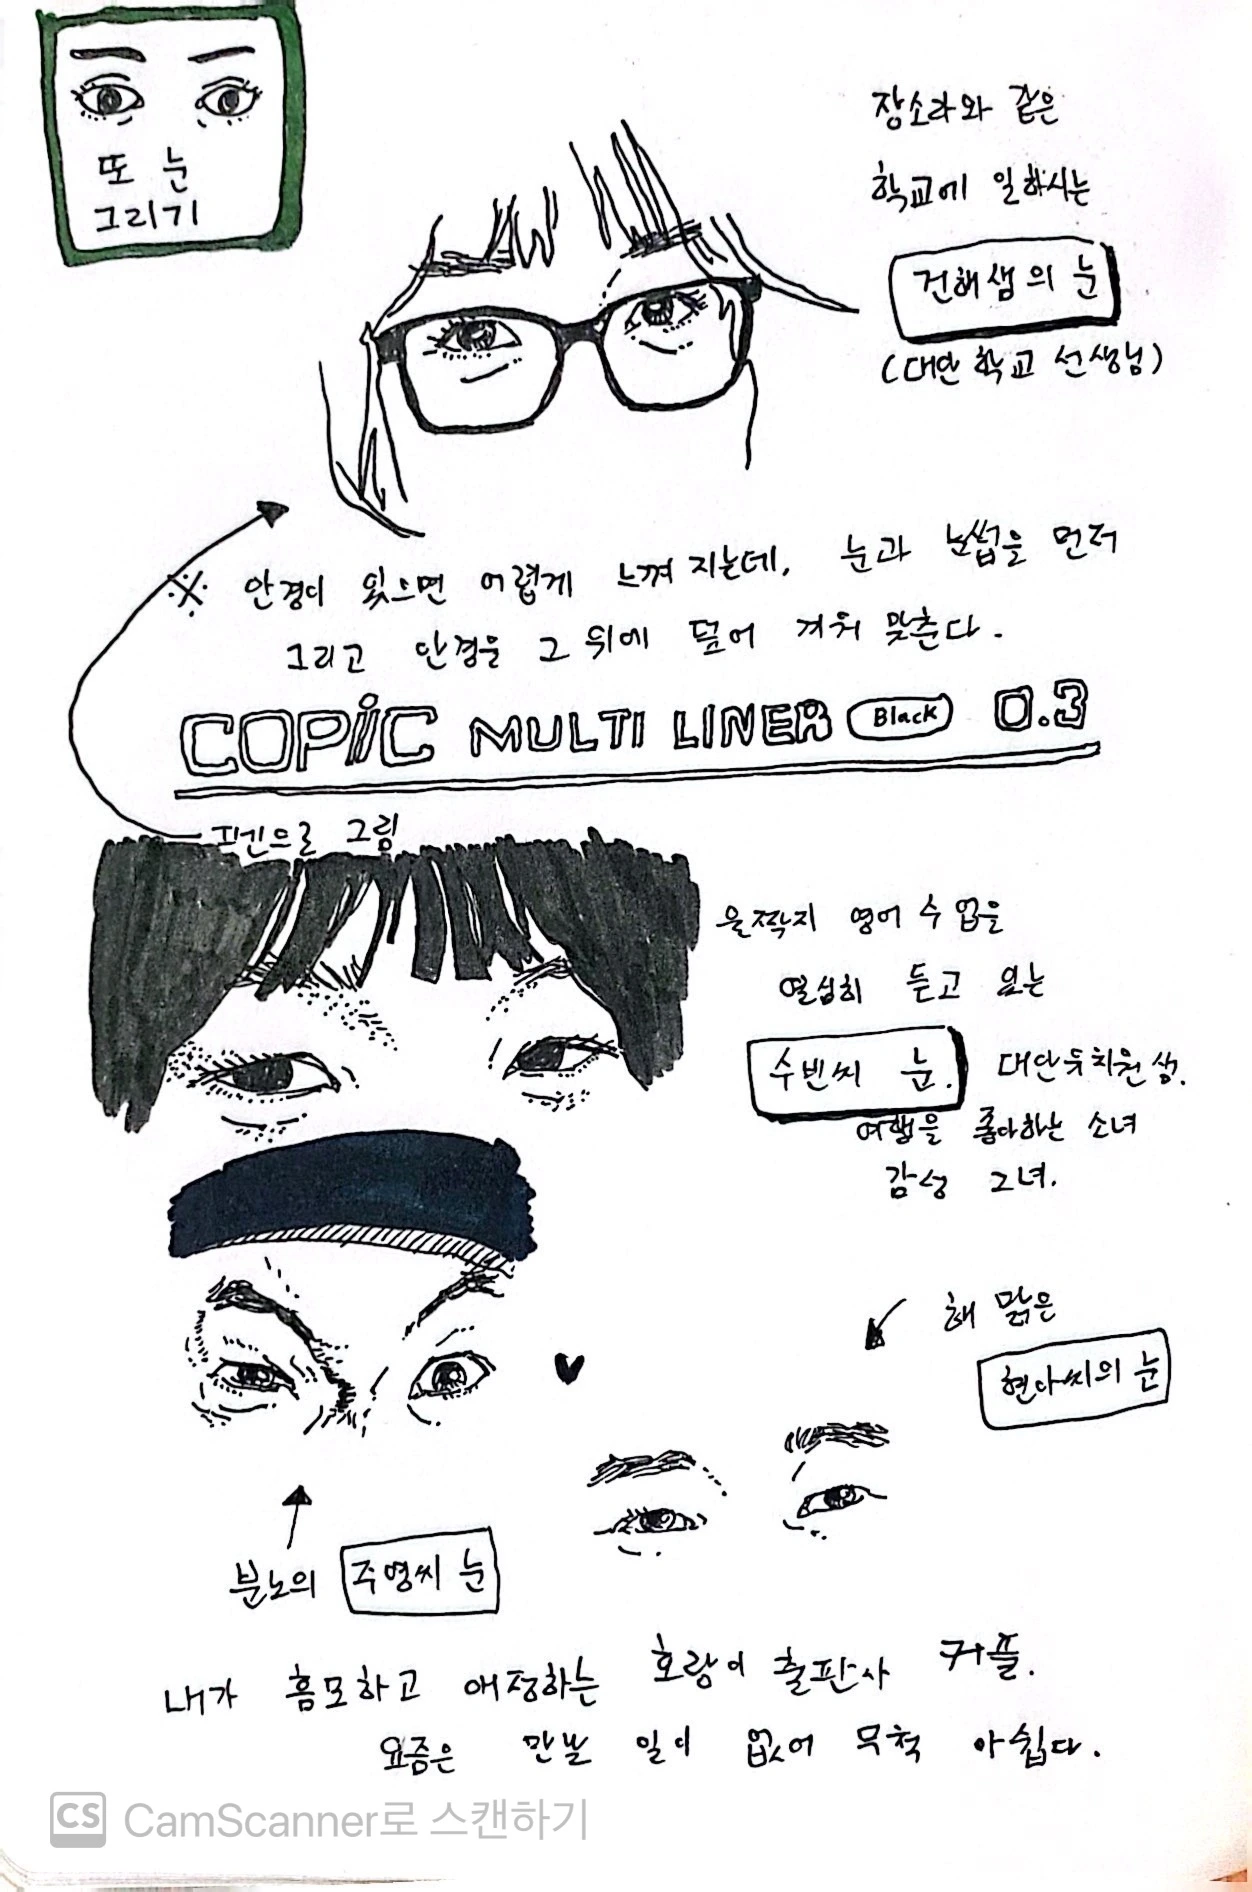 또 눈
그리기
장소라와 같은
학교에 일하시는
건해샘의 눈
(대안 학교 선생님)
※ 안경이 있으면 어렵게 느껴지는데, 눈과 눈썹을 먼저
그리고 안경을 그 위에 덮어 껴워 맞춘다.
COPiC MULTI LINER Black 0.3
펜으로 그림
영어 수업을
열심히 듣고 있는
수빈씨 눈. 대안유치원생.
여행을 좋아하는 소녀
감성 그녀.
해 맑은
현아씨의 눈
분노의 주영씨 눈
내가 흠모하고 애정하는 호랑이 출판사 커플.
요즘은 만날 일이 없어 무척 아쉽다.
CS CamScanner로 스캔하기